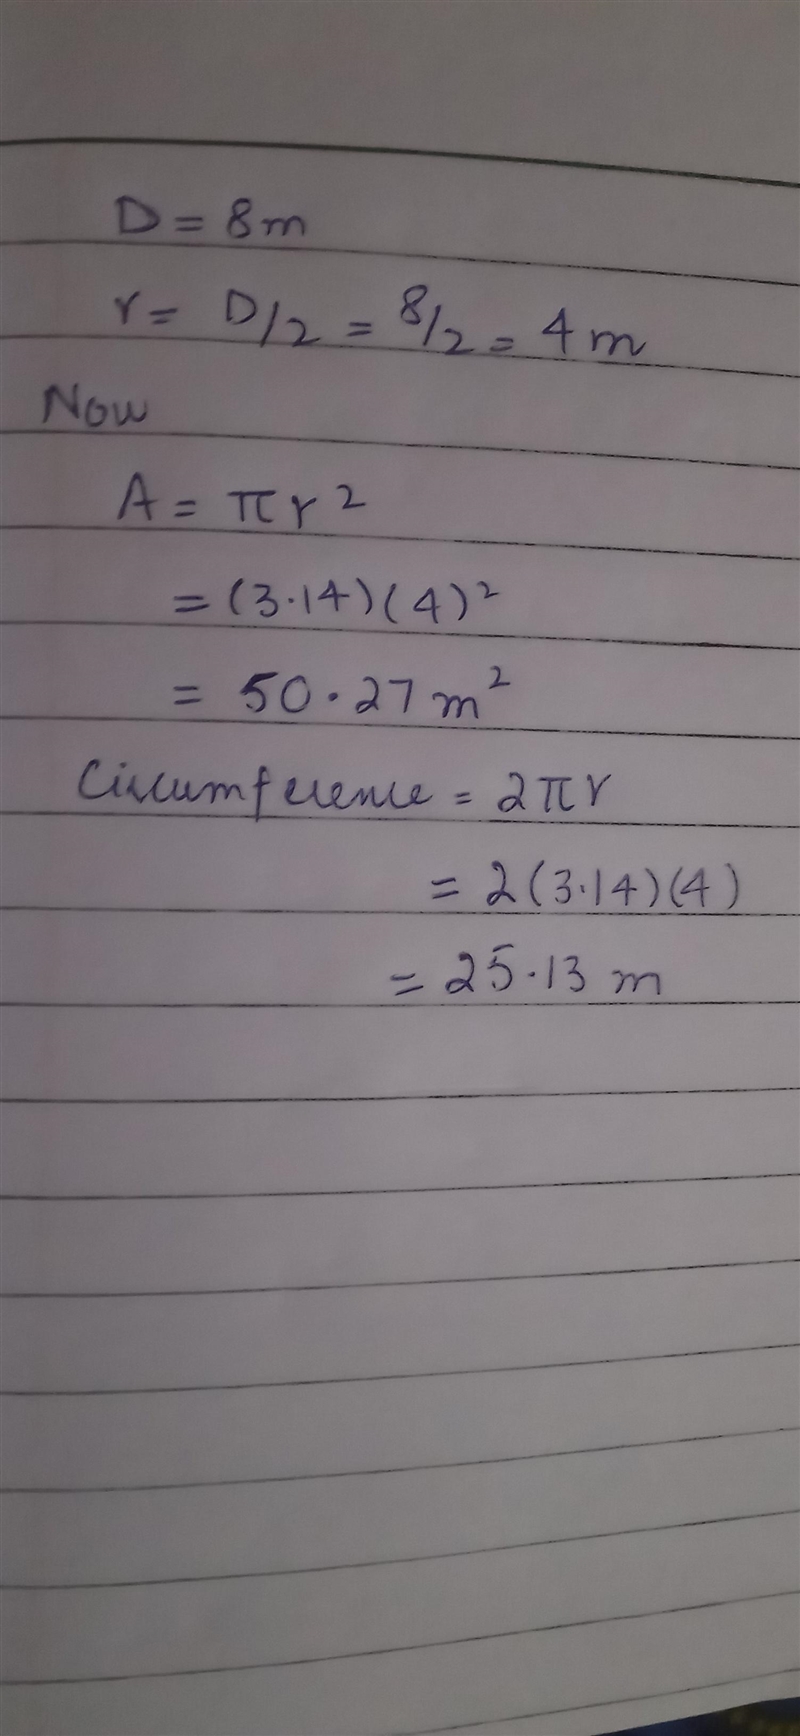 D = 8m
r = D/2 = 8/2 = 4 m
Now
A = πr²
= (3.14)(4)²
= 50.27 m²
Circumference = 2πr
= 2(3.14)(4)
= 25.13 m